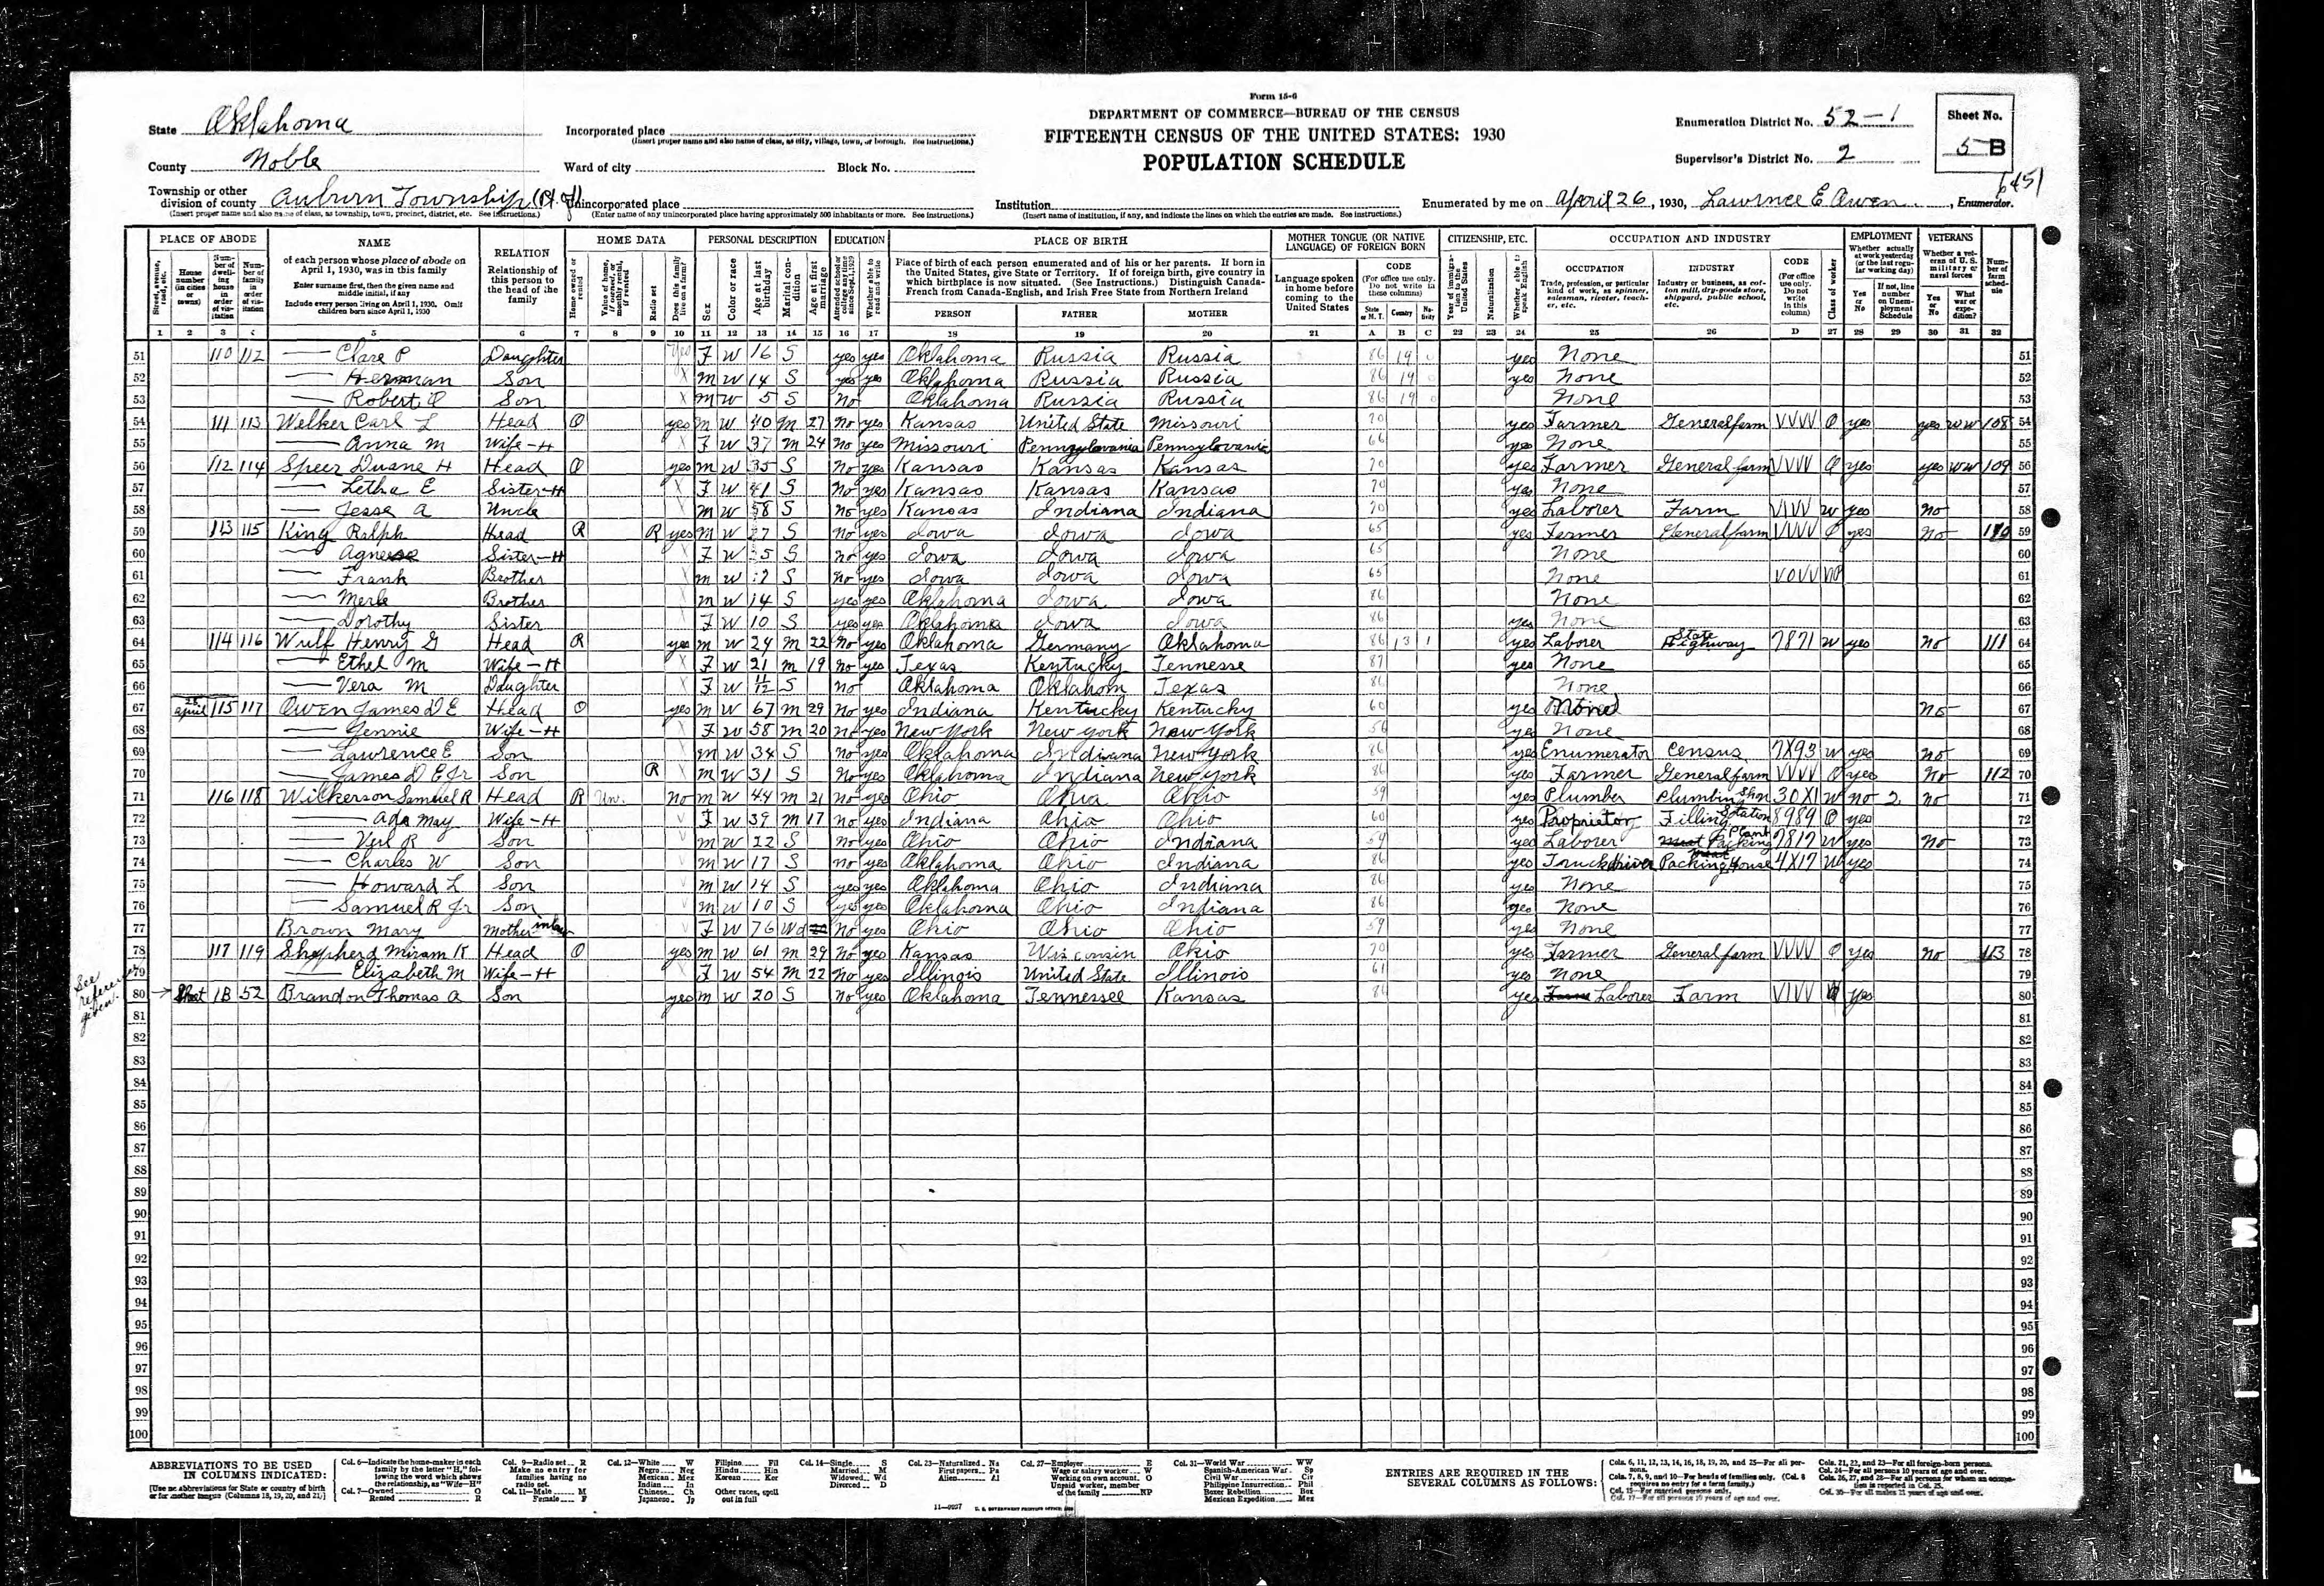 Form 15-6
DEPARTMENT OF COMMERCE—BUREAU OF THE CENSUS
FIFTEENTH CENSUS OF THE UNITED STATES: 1930
POPULATION SCHEDULE
State Oklahoma
County Noble
Township or other division of county Auburn Township (Pt. of)
(Insert proper name and also name of class, as township, town, precinct, district, etc. See instructions.)
Incorporated place
(Insert proper name and also name of class, as city, village, town, or borough. See instructions.)
Ward of city Block No.
Unincorporated place
(Enter name of any unincorporated place having approximately 500 inhabitants or more. See instructions.)
Institution
(Insert name of institution, if any, and indicate the lines on which the entries are made. See instructions.)
Enumeration District No. 52-1
Supervisor's District No. 2
Sheet No. 5 B
6451
Enumerated by me on April 26, 1930, Lawrnce E Owen, Enumerator.
PLACE OF ABODE NAME RELATION HOME DATA PERSONAL DESCRIPTION EDUCATION PLACE OF BIRTH MOTHER TONGUE (OR NATIVE LANGUAGE) OF FOREIGN BORN CITIZENSHIP, ETC. OCCUPATION AND INDUSTRY EMPLOYMENT VETERANS
51 110 112 — Clare P Daughter yes F W 16 S yes yes Oklahoma Russia Russia 86 19 0 yes None 51
52 — Herman Son X M W 14 S yes yes Oklahoma Russia Russia 86 19 0 yes None 52
53 — Robert Son X M W 5 S No Oklahoma Russia Russia 86 19 0 None 53
54 111 113 Welker Carl L Head O yes M W 40 M 27 No yes Kansas United State Missouri 70 yes Farmer General farm VVVV O yes yes WW 108 54
55 — Anna M Wife-H X F W 37 M 24 No yes Missouri Pennsylovania Pennsylovania 66 yes None 55
56 112 114 Speer Duane H Head O yes M W 35 S No yes Kansas Kansas Kansas 70 yes Farmer General farm VVVV O yes yes WW 109 56
57 — Letha E Sister-H X F W 41 S No yes Kansas Kansas Kansas 70 yes None 57
58 — Jesse A Uncle M W 58 S No yes Kansas Indiana Indiana 70 yes Laborer Farm VIVV W yes No 58
59 113 115 King Ralph Head R R yes M W 27 S No yes Iowa Iowa Iowa 65 yes Farmer General farm VVVV O yes No 110 59
60 — Sister-H X F W 25 S No yes Iowa Iowa Iowa 65 None 60
61 — Frank Brother X M W S No yes Iowa Iowa Iowa 65 None VOVV NP 61
62 — Merle Brother X M W 14 S yes yes Oklahoma Iowa Iowa 86 None 62
63 — Dorothy Sister F W 10 S yes yes Oklahoma Iowa Iowa 86 yes None 63
64 114 116 Wulf Henry G Head R yes M W 24 M 22 No yes Oklahoma Germany Oklahoma 86 13 1 yes Laborer State Highway 7871 W yes No 111 64
65 — Ethel M Wife-H X F W 21 M 19 No yes Texas Kentucky Tennesse 87 yes None 65
66 — Vera M Daughter X F W 11/12 S No Oklahoma Oklahom Texas 86 None 66
67 April 28 115 117 Owen James D E Head O yes M W 67 M 29 No yes Indiana Kentucky Kentucky 60 yes None No 67
68 — Jennie Wife-H F W 58 M 20 No yes New York New York New York 56 yes None 68
69 — Lawrence E Son X M W 34 S No yes Oklahoma Indiana New York 86 yes Enumerator Census 7X93 W yes No 69
70 — James D E Jr Son R X M W 31 S No yes Oklahoma Indiana New York 86 yes Farmer General farm VVVV O yes No 112 70
71 116 118 Wilkerson Samuel R Head R Un. No M W 44 M 21 No yes Ohio Ohio Ohio 59 yes Plumber Plumbing Shop 30X1 W no 2 no 71
72 — Ada May Wife-H V F W 39 M 17 No yes Indiana Ohio Ohio 60 yes Proprietor Filling Station 8989 O yes 72
73 — Verl R Son V M W 22 S No yes Ohio Ohio Indiana 59 yes Laborer Packing Plant 7817 W yes No 73
74 — Charles W Son V M W 17 S no yes Oklahoma Ohio Indiana 86 yes Truck driver meat Packing House 4X17 W yes 74
75 — Howard L Son V M W 14 S yes yes Oklahoma Ohio Indiana 86 yes None 75
76 — Samuel R Jr Son V M W 10 S yes yes Oklahoma Ohio Indiana 86 yes None 76
77 Brown Mary Mother in law V F W 76 Wd No yes Ohio Ohio Ohio 59 yes None 77
78 117 119 Shepherd Miram K Head O yes M W 61 M 29 No yes Kansas Wisconsin Ohio 70 yes Farmer General farm VVVV O Yes No 113 78
79 — Elizabeth M Wife-H X F W 54 M 22 No yes Illinois United State Illinois 61 yes None 79
See reference given.
80 → Sheet 1B 52 Brandon Thomas A Son yes M W 20 S No yes Oklahoma Tennessee Kansas 86 yes Laborer Farm VIVV W yes 80
81 81
82 82
83 83
84 84
85 85
86 86
87 87
88 88
89 89
90 90
91 91
92 92
93 93
94 94
95 95
96 96
97 97
98 98
99 99
100 100
ABBREVIATIONS TO BE USED IN COLUMNS INDICATED:
[Use no abbreviations for State or country of birth or for mother tongue (Columns 18, 19, 20, and 21)]
Col. 6—Indicate the home-maker in each family by the letter "H," following the word which shows the relationship, as "Wife—H"
Col. 7—Owned O Rented R
Col. 9—Radio set R Make no entry for families having no radio set.
Col. 11—Male M Female F
Col. 12—White W Negro Neg Mexican Mex Indian In Chinese Ch Japanese Jp Filipino Fil Hindu Hin Korean Kor Other races, spell out in full
Col. 14—Single S Married M Widowed Wd Divorced D
Col. 23—Naturalized Na First papers Pa Alien Al
Col. 27—Employer E Wage or salary worker W Working on own account O Unpaid worker, member of the family NP
Col. 31—World War WW Spanish-American War Sp Civil War Civ Philippine Insurrection Phil Boxer Rebellion Box Mexican Expedition Mex
ENTRIES ARE REQUIRED IN THE SEVERAL COLUMNS AS FOLLOWS:
Cols. 6, 11, 12, 13, 14, 16, 18, 19, 20, and 25—For all persons.
Cols. 7, 8, 9, and 10—For heads of families only. (Col. 8 requires no entry for a farm family.)
Col. 15—For married persons only.
Col. 17—For all persons 10 years of age and over.
Cols. 21, 22, and 23—For all foreign-born persons.
Col. 24—For all persons 10 years of age and over.
Cols. 26, 27, and 28—For all persons for whom an occupation is reported in Col. 25.
Col. 30—For all males 21 years of age and over.
U. S. GOVERNMENT PRINTING OFFICE
FILM